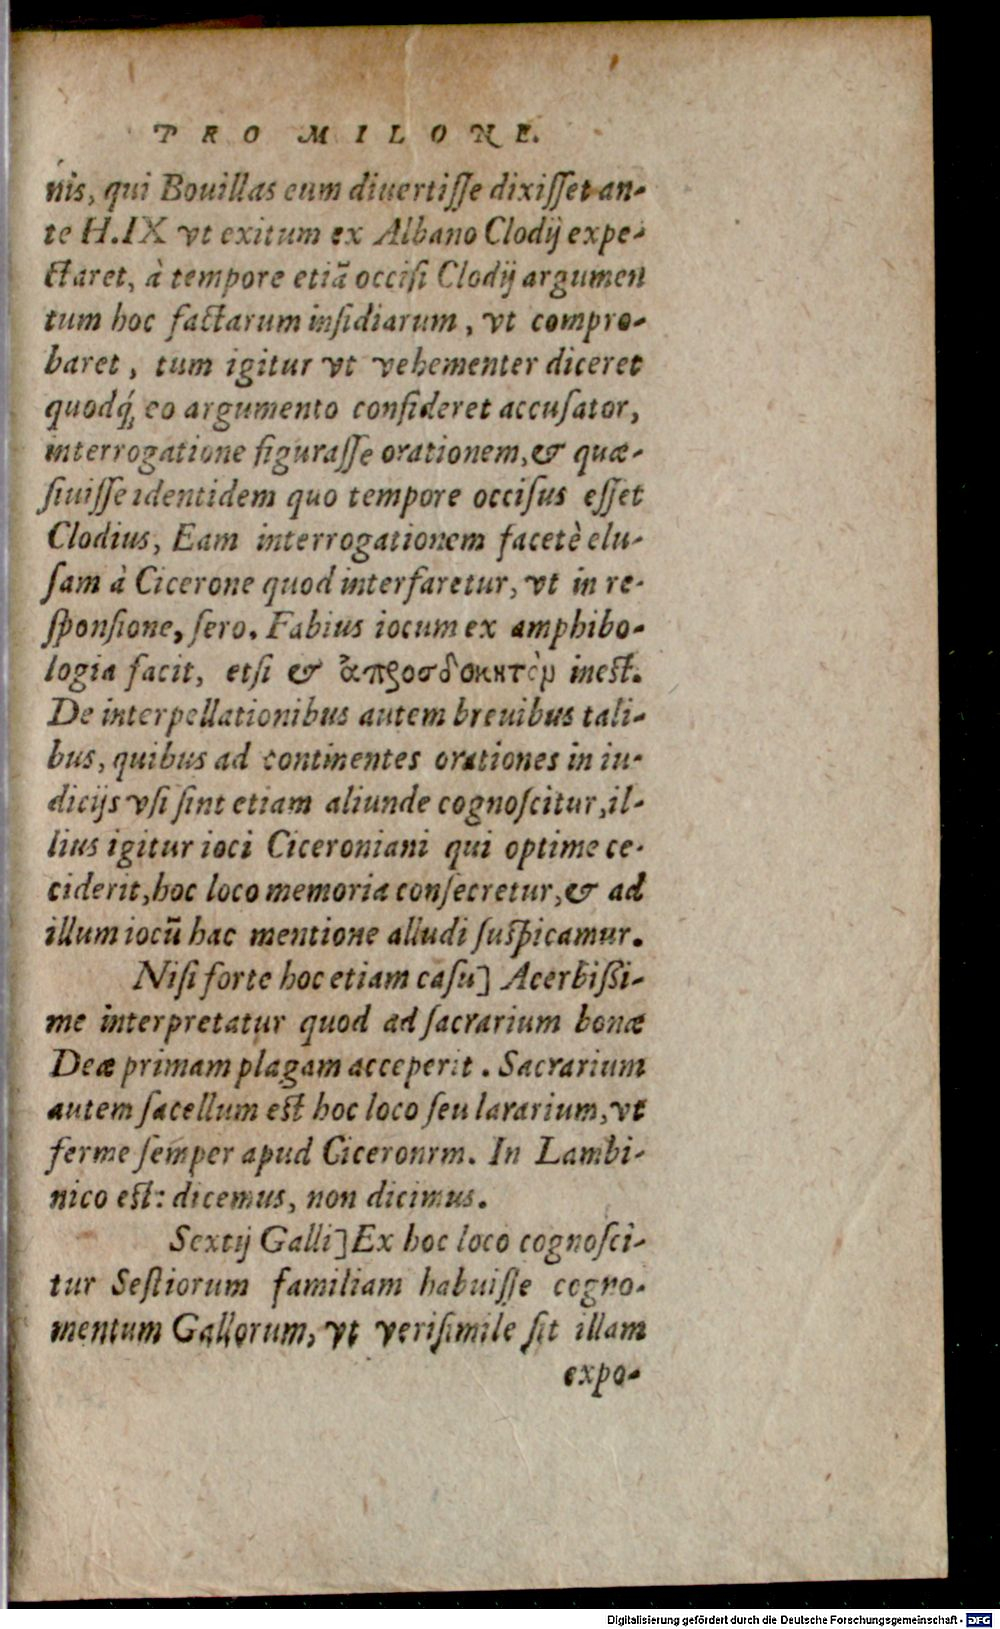 PRO MILONE.
nis, qui Bouillas eum diuertiſſe dixiſſet an-
te H.IX vt exitum ex Albano Clodij expe-
ctaret, à tempore etiã occiſi Clodij argumen
tum hoc factarum inſidiarum, vt compro-
baret, tum igitur vt vehementer diceret
quodq́; eo argumento confideret accuſator,
interrogatione figuraſſe orationem, & quæ-
ſiuiſſe identidem quo tempore occiſus eſſet
Clodius, Eam interrogationem facetè elu-
ſam à Cicerone quod interfaretur, vt in re-
ſponſione, ſero. Fabius iocum ex amphibo-
logia facit, etſi & ἀπροσδοκητὸν ineſt.
De interpellationibus autem breuibus tali-
bus, quibus ad continentes orationes in iu-
dicijs vſi ſint etiam aliunde cognoſcitur, il-
lius igitur ioci Ciceroniani qui optime ce-
ciderit, hoc loco memoria conſecretur, & ad
illum iocũ hac mentione alludi ſuſpicamur.
Niſi forte hoc etiam caſu] Acerbiſſi-
me interpretatur quod ad ſacrarium bonæ
Deæ primam plagam acceperit. Sacrarium
autem ſacellum eſt hoc loco ſeu lararium, vt
ferme ſemper apud Ciceronrm. In Lambi-
nico eſt: dicemus, non dicimus.
Sextij Galli] Ex hoc loco cognoſci-
tur Seſtiorum familiam habuiſſe cogno-
mentum Gallorum, vt veriſimile ſit illam
expo-
Digitalisierung gefördert durch die Deutsche Forschungsgemeinschaft - DFG